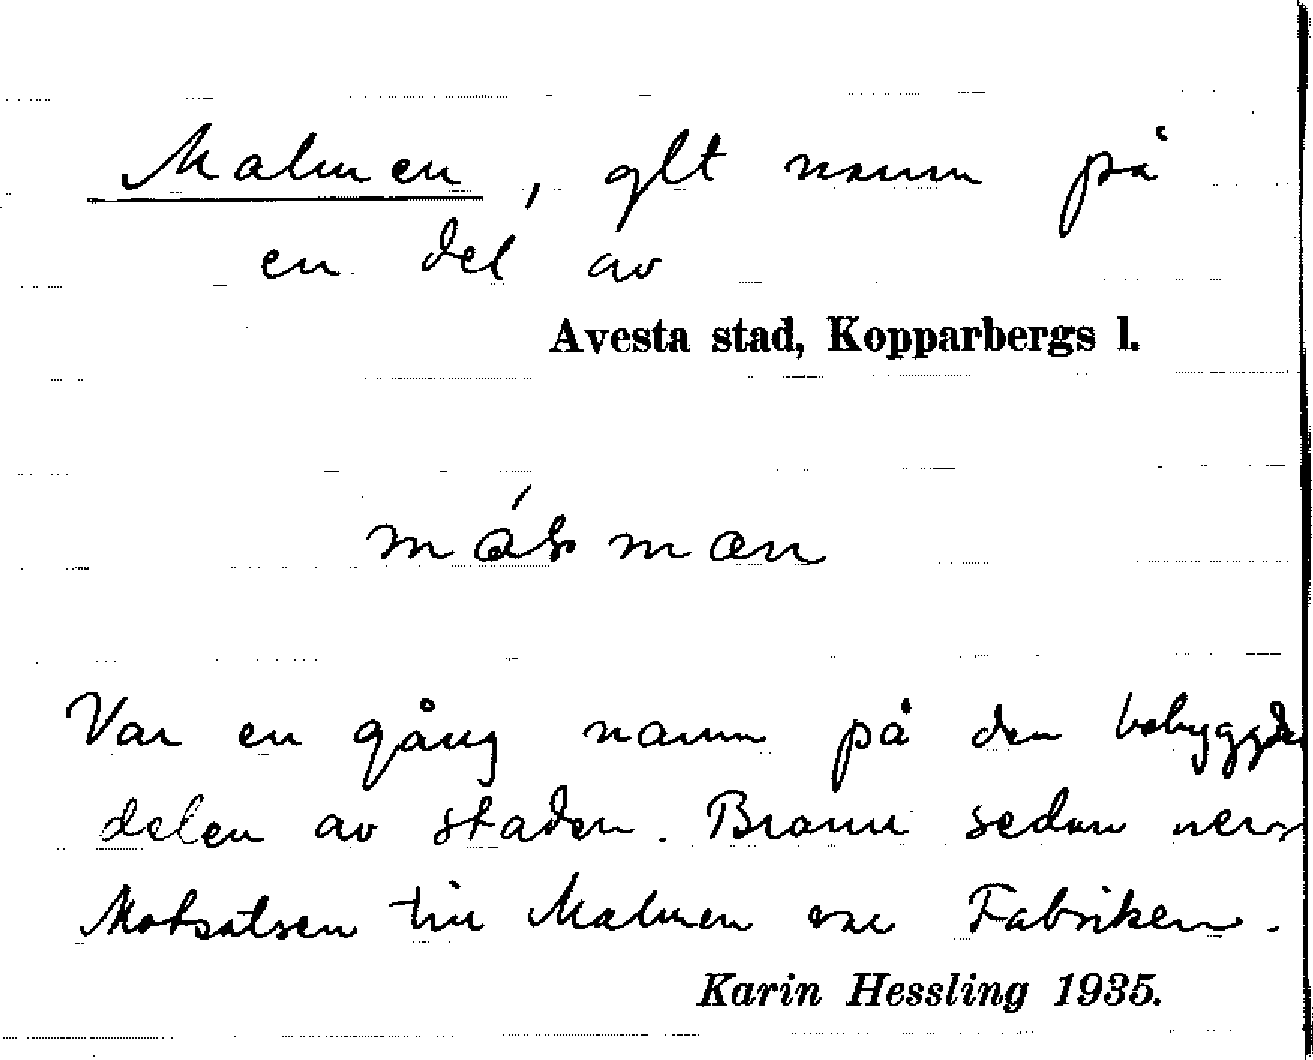 Malmen, glt namn på
en del av
Avesta stad, Kopparbergs l.
Var en gång namn på den bebyggda
delen av staden. Brann sedan ner
Motsatsen till Malmen var Fabriken.
Karin Hessling 1935.